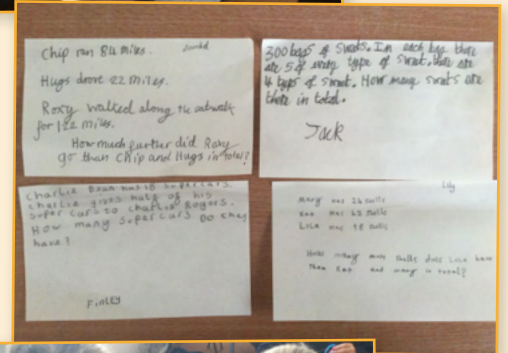 Chip ran 84 miles.
Hugs drove 22 miles.
Roxy walked along the catwalk
for 122 miles.
How much further did Roxy
go than Chip and Hugs in total?
300 bags of sweets. In each bag there
are 5 of every type of sweet. there are
4 types of sweet. How many sweets are
there in total.
Jack
Charlie Bean has 18 supercars.
Charlie gives half of his
super cars to charlie Rogers.
How many supercars Do they
have?
FinLey
Lily
Mary has 26 shells
has 43 shells
Lola has 98 shells
How many more shells does Lola have
than and mary in total?